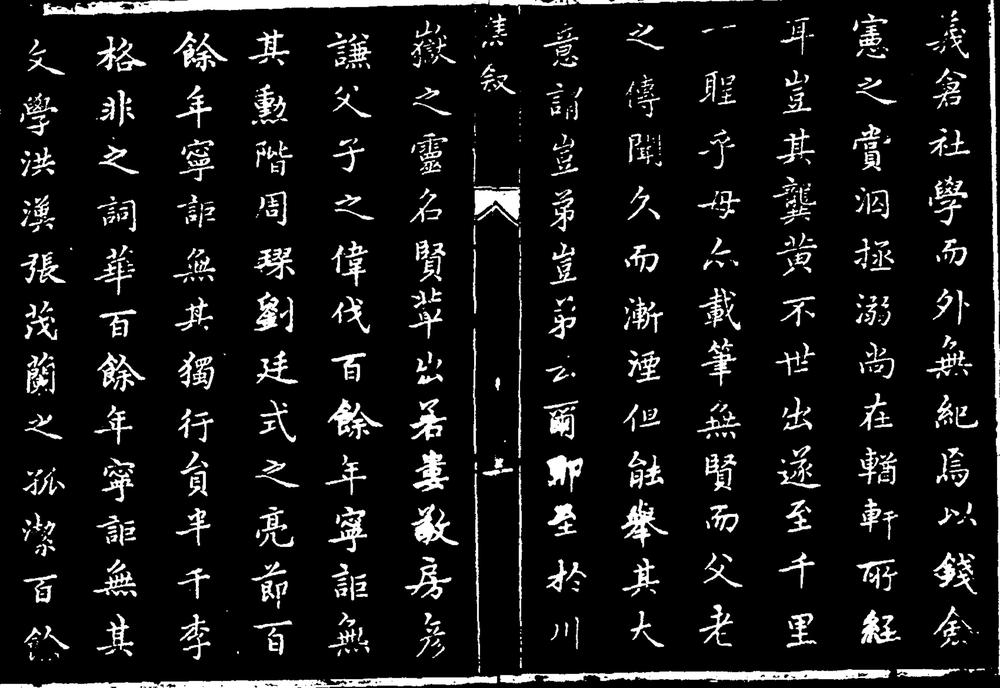 義倉社學而外無紀焉以錢僉
憲之賞泅拯溺尚在輶軒所経
耳豈其龔黄不世出遂至千里
一聖乎毋亦載筆無賢而父老
之傳聞久而漸湮但能舉其大
意謂豈弟豈弟云爾耶至於川
舊叙
三
嶽之靈名賢輩出若婁敬房彦
謙父子之偉伐百餘年寧詎無
其勲階周璨劉廷式之亮節百
餘年寧詎無其獨行貟半千李
格非之詞華百餘年寧詎無其
文學洪漢張茂蘭之孤潔百餘